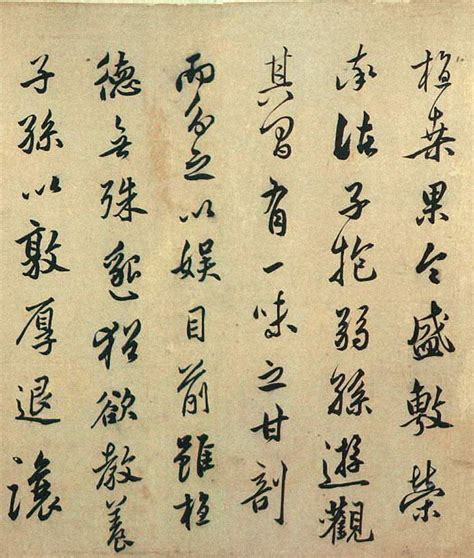 植桑果今盛敷榮
率諸子抱弱孫遊觀
其間有一味之甘割
而分之以娛目前雖植
德無殊邈猶欲教養
子孫以敦厚退讓